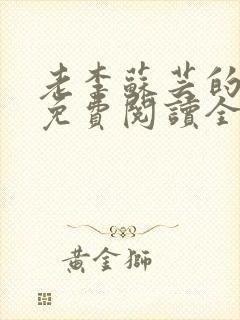 老李蘇芸的
免費閱讀全
黃金獅